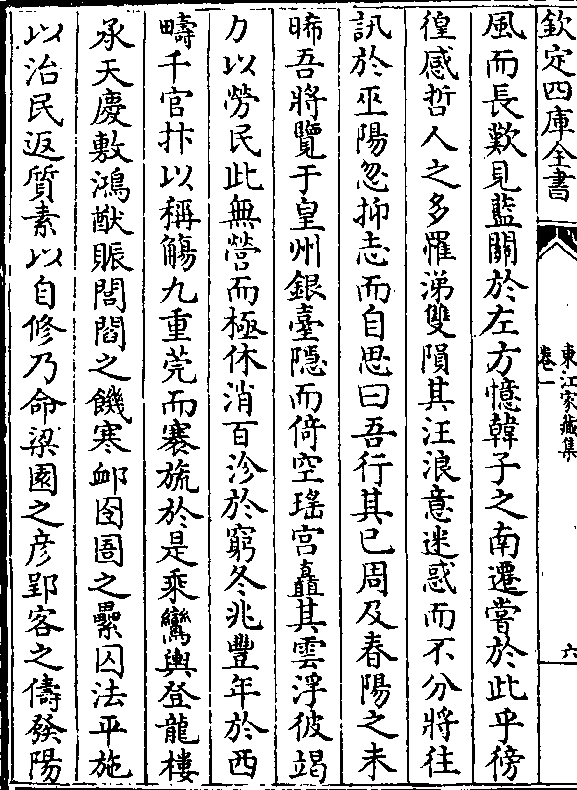 欽定四庫全書
東江家藏集
卷一
六
風而長歎見藍關於左方憶韓子之南遷嘗於此乎徬
徨感哲人之多罹涕雙隕其汪浪意迷惑而不分將往
訊於巫陽忽抑志而自思曰吾行其已周及春陽之未
晞吾將覽于皇州銀臺隱而倚空瑤宮矗其雲浮彼竭
力以勞民此無營而極休消百沴於窮冬兆豐年於西
疇千官抃以稱觴九重莞而褰旒於是乘鸞輿登龍樓
承天慶敷鴻猷賑閭閻之饑寒衈囹圄之纍囚法平施
以治民返質素以自修乃命梁園之彦郢客之儔發陽